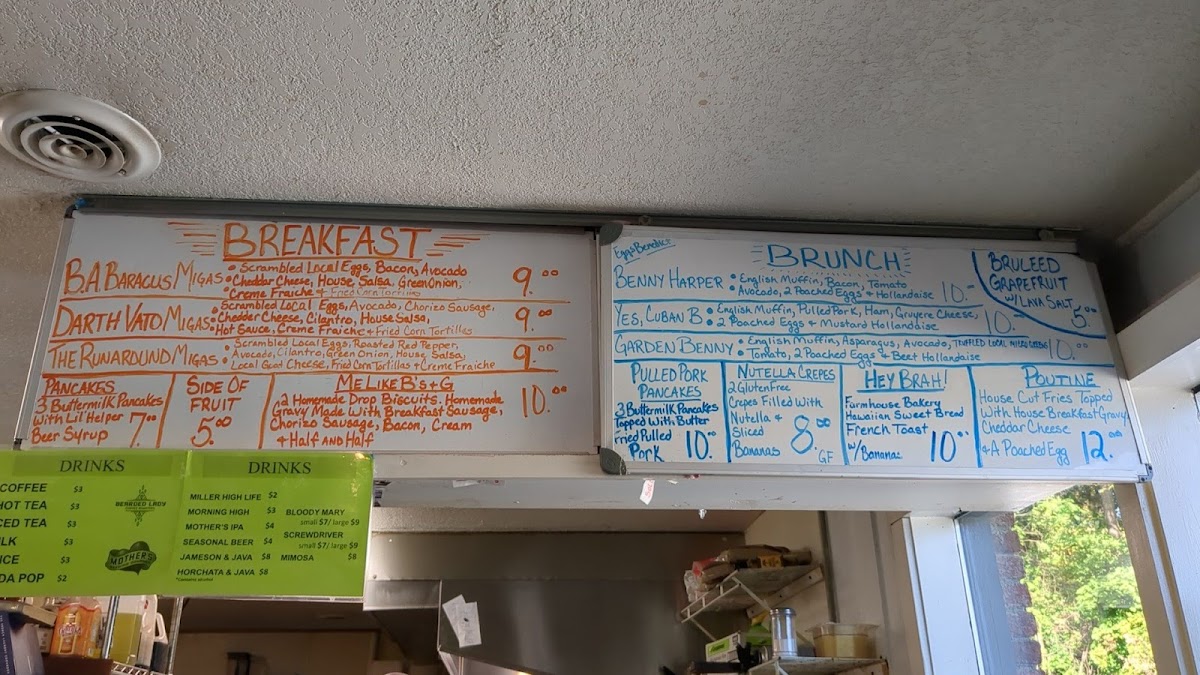 BREAKFAST
B.A. BARACUS MIGAS
• Scrambled Local Eggs, Bacon, Avocado
• Cheddar Cheese, House Salsa, Green Onion,
• Creme Fraiche & Fried Corn Tortillas
9.00
DARTH VATO MIGAS
Scrambled Local Eggs, Avocado, Chorizo Sausage,
• Chedder Cheese, Cilantro, House Salsa,
• Hot Sauce, Creme Fraiche & Fried Corn Tortillas
9.00
THE RUNAROUND MIGAS
• Scrambled Local Eggs, Roasted Red Pepper,
• Avocado, Cilantro, Green Onion, House Salsa,
Local Goat Cheese, Fried Corn Tortillas & Creme Fraiche
9.00
PANCAKES
3 Buttermilk Pancakes
With Lil Helper
Beer Syrup 7.00
SIDE OF
FRUIT
5.00
ME LIKE B's & G
• 2 Homemade Drop Biscuits. Homemade
Gravy Made With Breakfast Sausage,
Chorizo Sausage, Bacon, Cream
& Half AND Half
10.00
Eggs Benedict
BRUNCH
BENNY HARPER
• English Muffin, Bacon, Tomato
• Avocado, 2 Poached Eggs & Hollandaise
10.-
BRULEED
GRAPEFRUIT
W/ LAVA SALT
5.00
YES, CUBAN B
• English Muffin, Pulled Pork, Ham, Gruyere Cheese,
• 2 Poached Eggs & Mustard Hollandaise
10.-
GARDEN BENNY
• English Muffin, Asparagus, Avocado, TRUFFLED LOCAL MICRO GREENS
• Tomato, 2 Poached Eggs & Beet Hollandaise
10.00
PULLED PORK
PANCAKES
3 Buttermilk Pancakes
Topped With Butter
Fried Pulled
Pork 10.00
NUTELLA CREPES
2 Gluten Free
Crepes Filled With
Nutella &
Sliced
Bananas
8.00
GF
HEY BRAH!
Farmhouse Bakery
Hawaiian Sweet Bread
French Toast
w/Bananas 10
POUTINE
House Cut Fries Topped
With House Breakfast Gravy
Cheddar Cheese
& A Poached Egg 12.00
DRINKS
COFFEE $3
HOT TEA $3
CED TEA $3
LK $3
ICE $3
DA POP $2
BEARDED LADY
MOTHER'S
DRINKS
MILLER HIGH LIFE $2
MORNING HIGH $3
MOTHER'S IPA $4
SEASONAL BEER $4
JAMESON & JAVA $8
HORCHATA & JAVA $8
*Contains alcohol
BLOODY MARY
small $7/ large $9
SCREWDRIVER
small $7/ large $9
MIMOSA $8